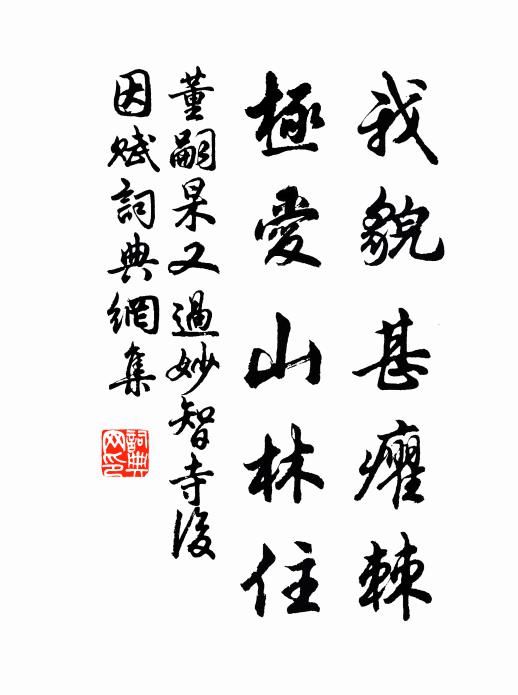 我貌甚癯棘
極愛山林住
董嗣杲又過妙智寺後
因賦詞典網集
詞典網印